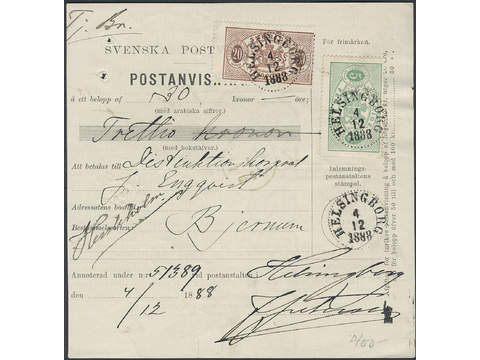 Tj. Br.
SVENSKA POST
För frimärken.
POSTANVIS
HELSINGBORG
4
12
1888
5
HELSINGBORG
4
12
1888
å ett belopp af 30 kronor öre;
(med arabiska siffror)
Trettio kronor
(med bokstäfver).
Att betalas till
Engqvist
Adressatens bostad
Bestämmelseorten: Bjernum
Hessleholm
Inlemnings-
postanstaltens
stämpel.
HELSINGBORG
4
12
1888
Annoterad under n:o 51389 vid postanstalten Helsingborg
den 4/12 1888